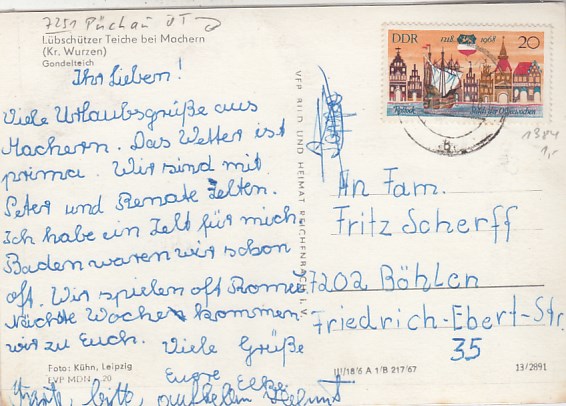 7251 Püchau üT
Lübschützer Teiche bei Machern
(Kr. Wurzen)
Gondelteich
Ihr Lieben!
Viele Urlaubsgrüße aus
Machern. Das Wetter ist
prima. Wir sind mit
Peter und Renate Zelten.
Ich habe ein Zelt für mich.
Baden waren wir schon
oft. Wir spielen oft Rome.
Nächste Woche kommen
wir zu Euch. Viele Grüße
Eure Elke
bitte,
Helmut
Foto: Kühn, Leipzig
EVP MDN -,20
VEB BILD UND HEIMAT REICHENBACH I. V.
DDR 1218 1968 20
Rostock
1384
1,-
An Fam.
Fritz Scherff
7202 Böhlen
Friedrich-Ebert-Str.
35
III/18/6 A 1/B 217/67
13/2891